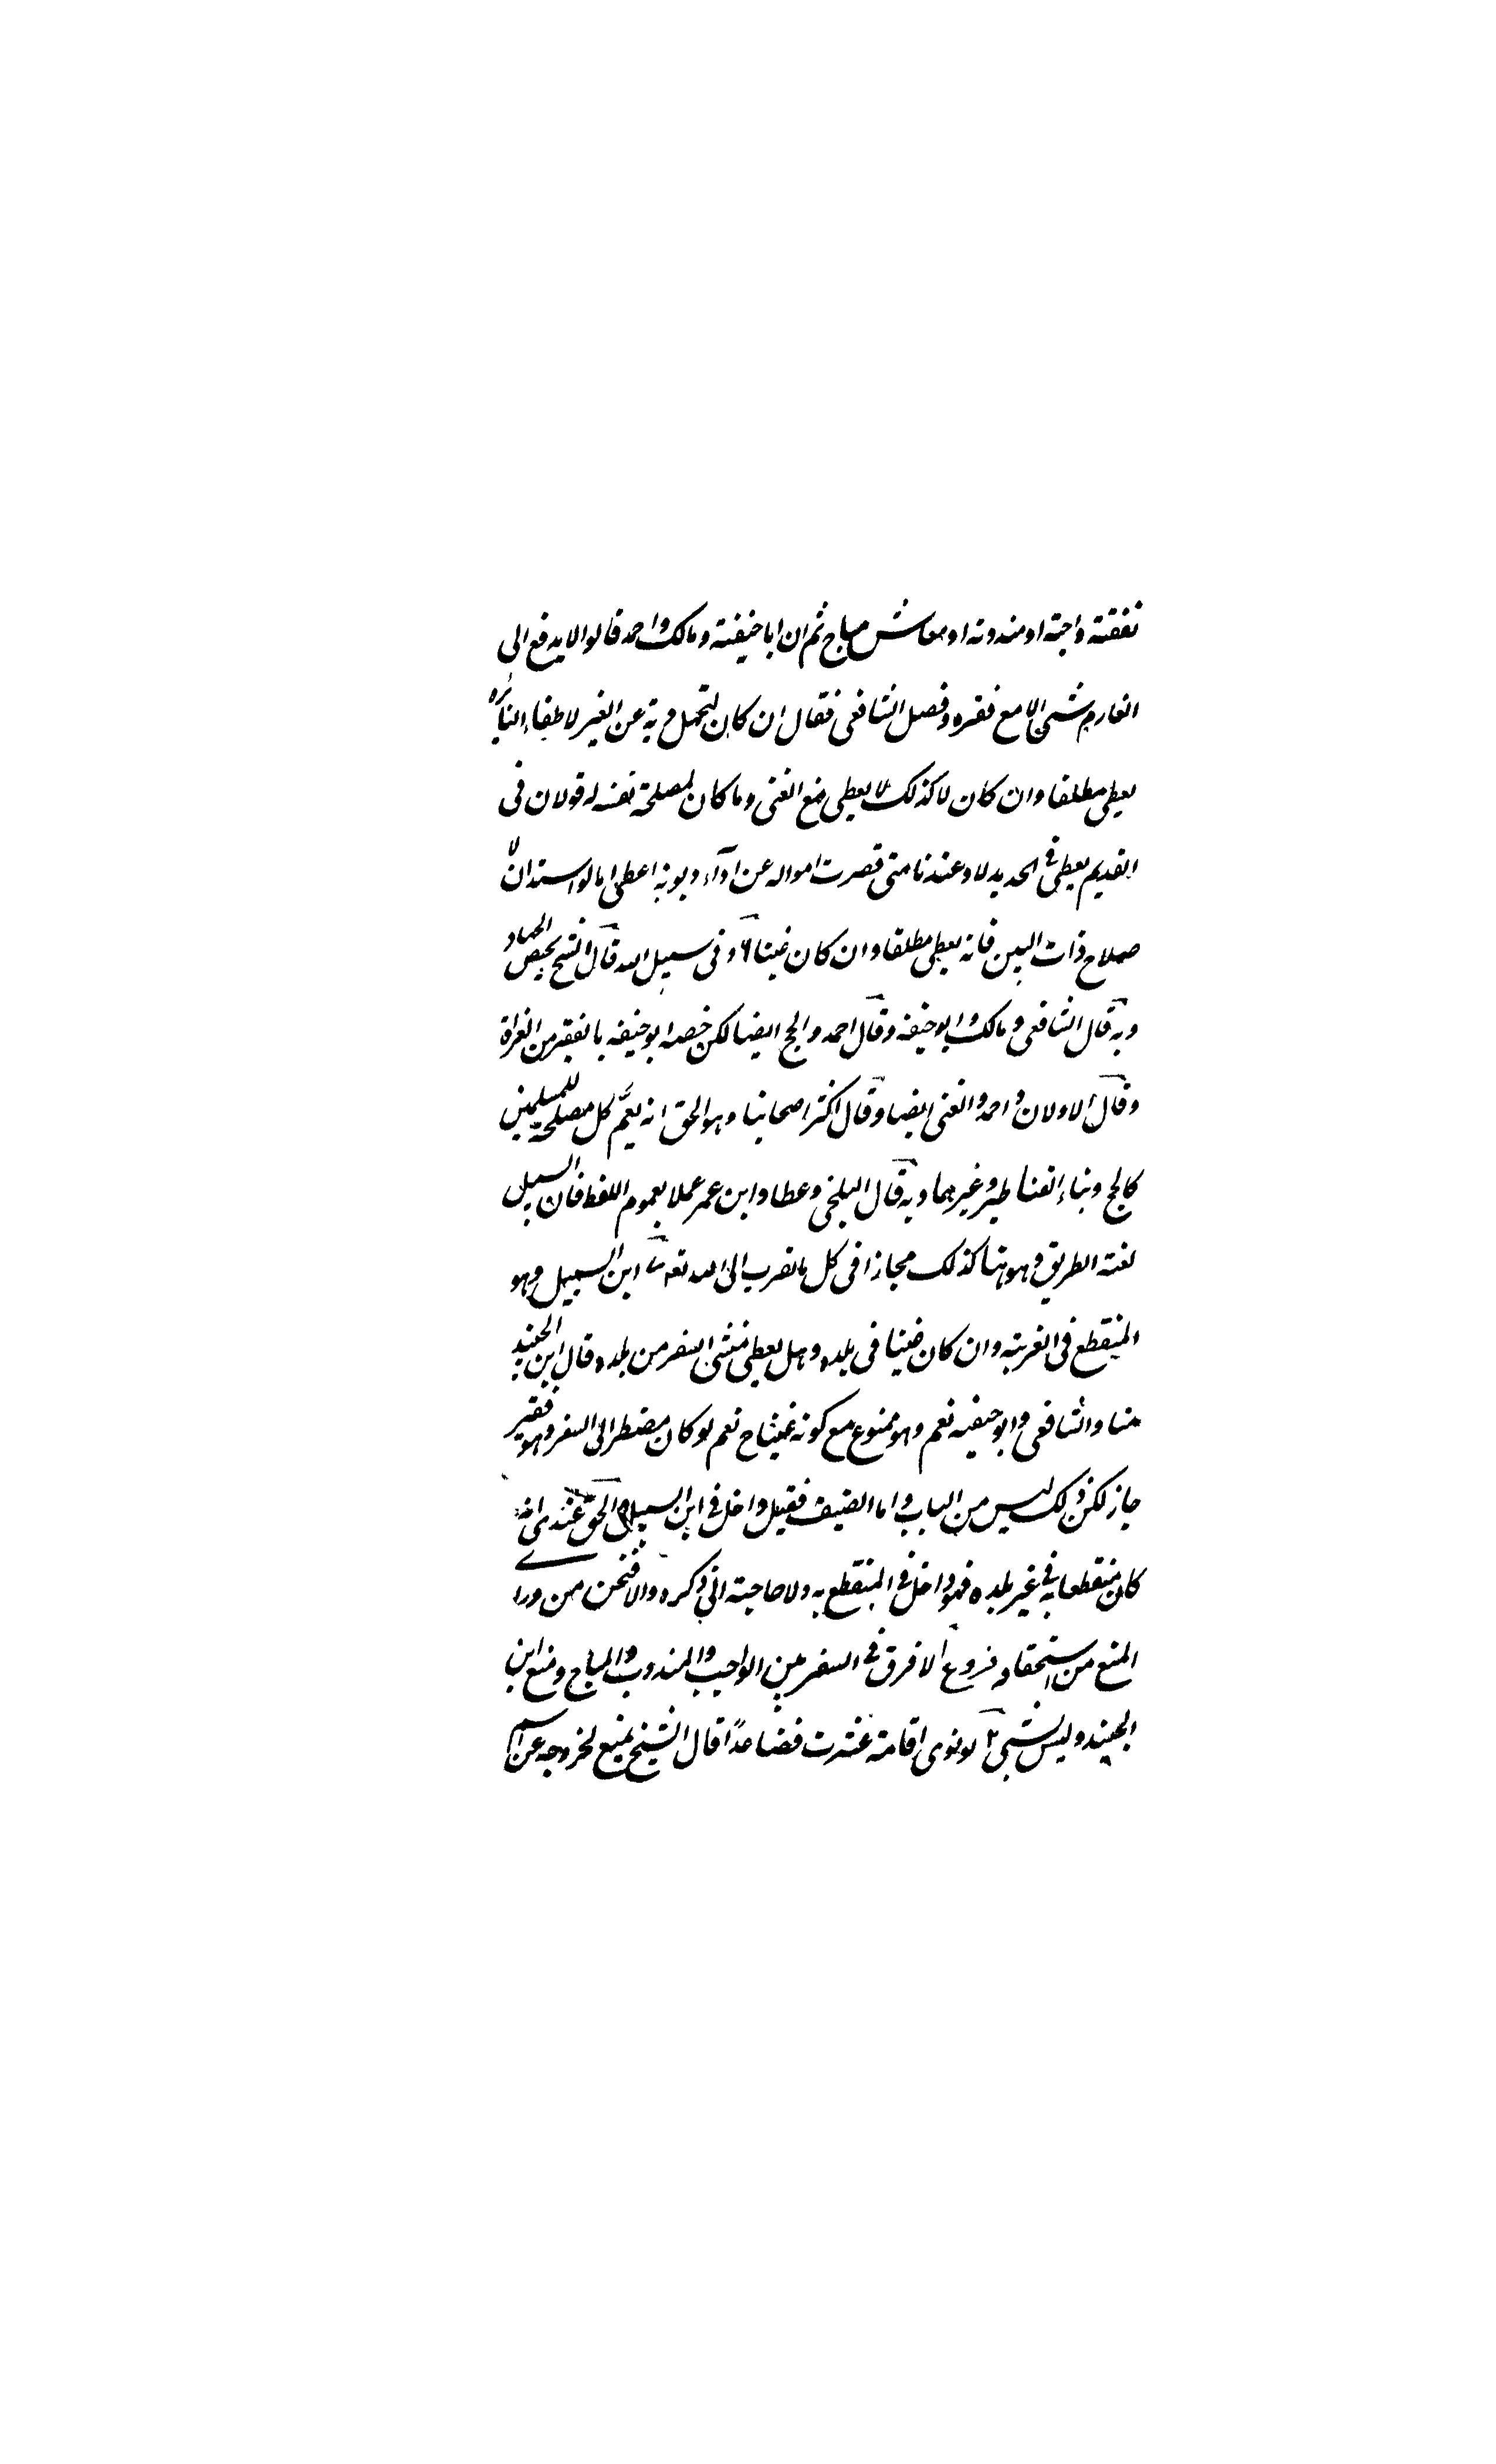 نفقة واجبة او مندوبة او معاش مباح ثم ان ابا حنيفة ومالك واحمد قالوا لا يدفع الى
الغارم شئ الا مع فقره وفصل الشافعى فقال ان كان لتحمل دية عن الغير لاطفاء النايرة
يعطى مطلقا وان كان لا كذلك لا يعطى مع الغنى وما كان لمصلحة نفسه له قولان فى
القديم يعطى وفى الجديد لا وعندنا متى قصرت امواله عن اداء ديونه اعطى اما لو استدان لا
صلاح ذات البين فانه يعطى مطلقا وان كان غنيا و فى سبيل الله قال الشيخ يختص الجهاد
وبه قال الشافعى ومالك وابو حنيفه وقال احمد والحج ايضا لكن خصه ابو حنيفه بالفقير من الغزاة
وقال الاولان واحمد والغنى ايضا وقال اكثر اصحابنا وهو الحق انه يعم كل مصلحة للمسلمين
كالحج وبناء القناطير وغيرهما وبه قال البلخى وعطا وابن عمر عملا بعموم اللفظ فان السبيل
لغة الطريق وهو هنا كذلك مجازا فى كل ما تقرب الى الله تع ابن السبيل وهو
المنقطع فى الغربة وان كان غنيا فى بلده وهل يعطى منشئ السفر من بلده قال ابن الجنيد
منا والشافعى وابو حنيفه نعم وهو ممنوع مع كونه غنيا ح نعم لو كان مضطرا الى السفر وهو فقير
جاز لكن ذلك ليس من الباب واما الضيف فقيل داخل فى ابن السبيل والحق عندى انه
كان منقطعا به فى غير بلده فهو داخل فى المنقطع به ولا حاجة الى ذكره والا فنحن من ورا
المنع من استحقاقه فروع ا لا فرق فى السفر بين الواجب والمندوب والمباح ومنع ابن
الجنيد وليس بشئ ب لو نوى اقامة عشرة فصاعدا قال الشيخ يمنع لخروجه عن اسم